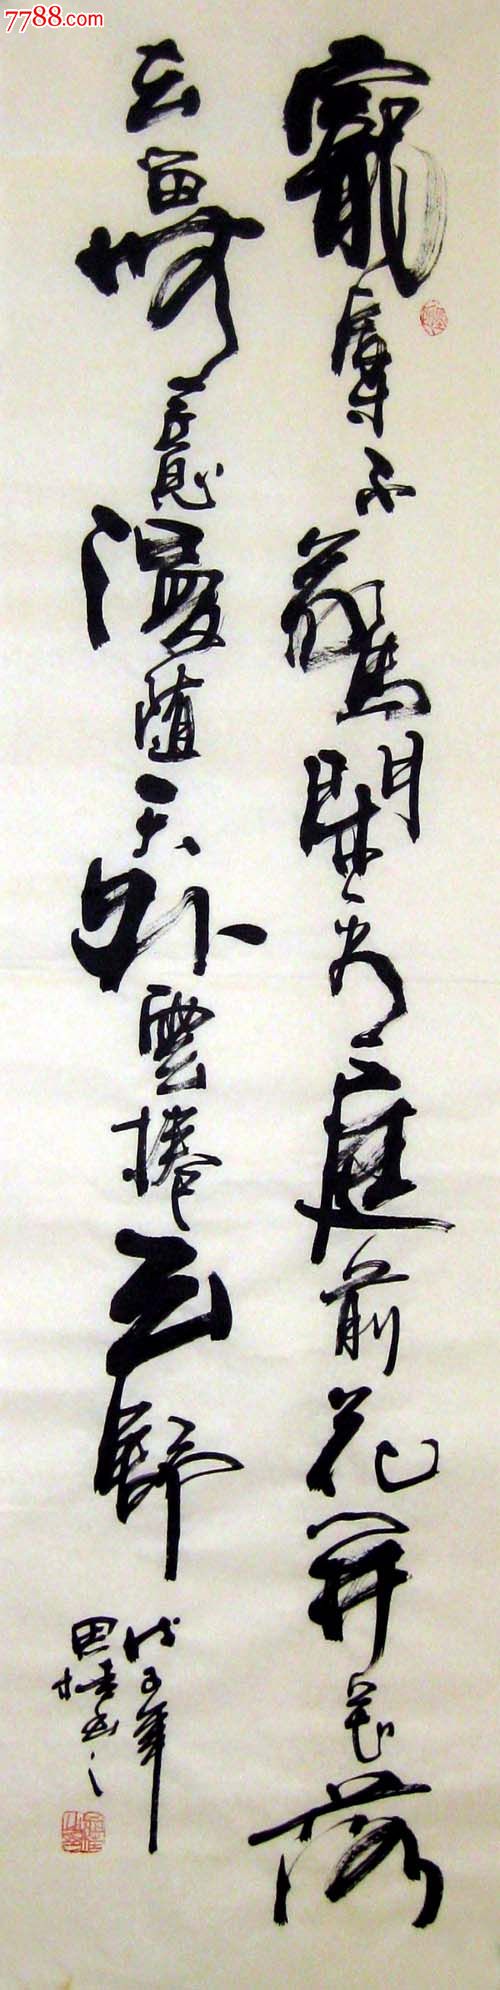 7788.com
寵辱不驚閑看庭前花開花落
去留無意漫随天外雲捲云舒
戊子年
田書之